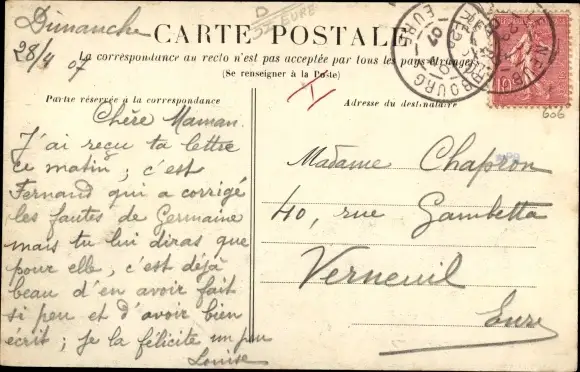 Dimanche
28/4 07
D
EURE
CARTE POSTALE
La correspondance au recto n'est pas acceptée par tous les pays étrangers
(Se renseigner à la Poste)
Partie réservée à la correspondance
Adresse du destinataire
606
Chère Maman.
J'ai reçu ta lettre
ce matin ; c'est
Fernand qui a corrigé
les fautes de Germaine
mais tu lui diras que
pour elle, c'est déjà
beau d'en avoir fait
si peu et d'avoir bien
écrit ; je la félicite un peu
Louise
Madame Chapron
40, rue Gambetta
Verneuil
Eure